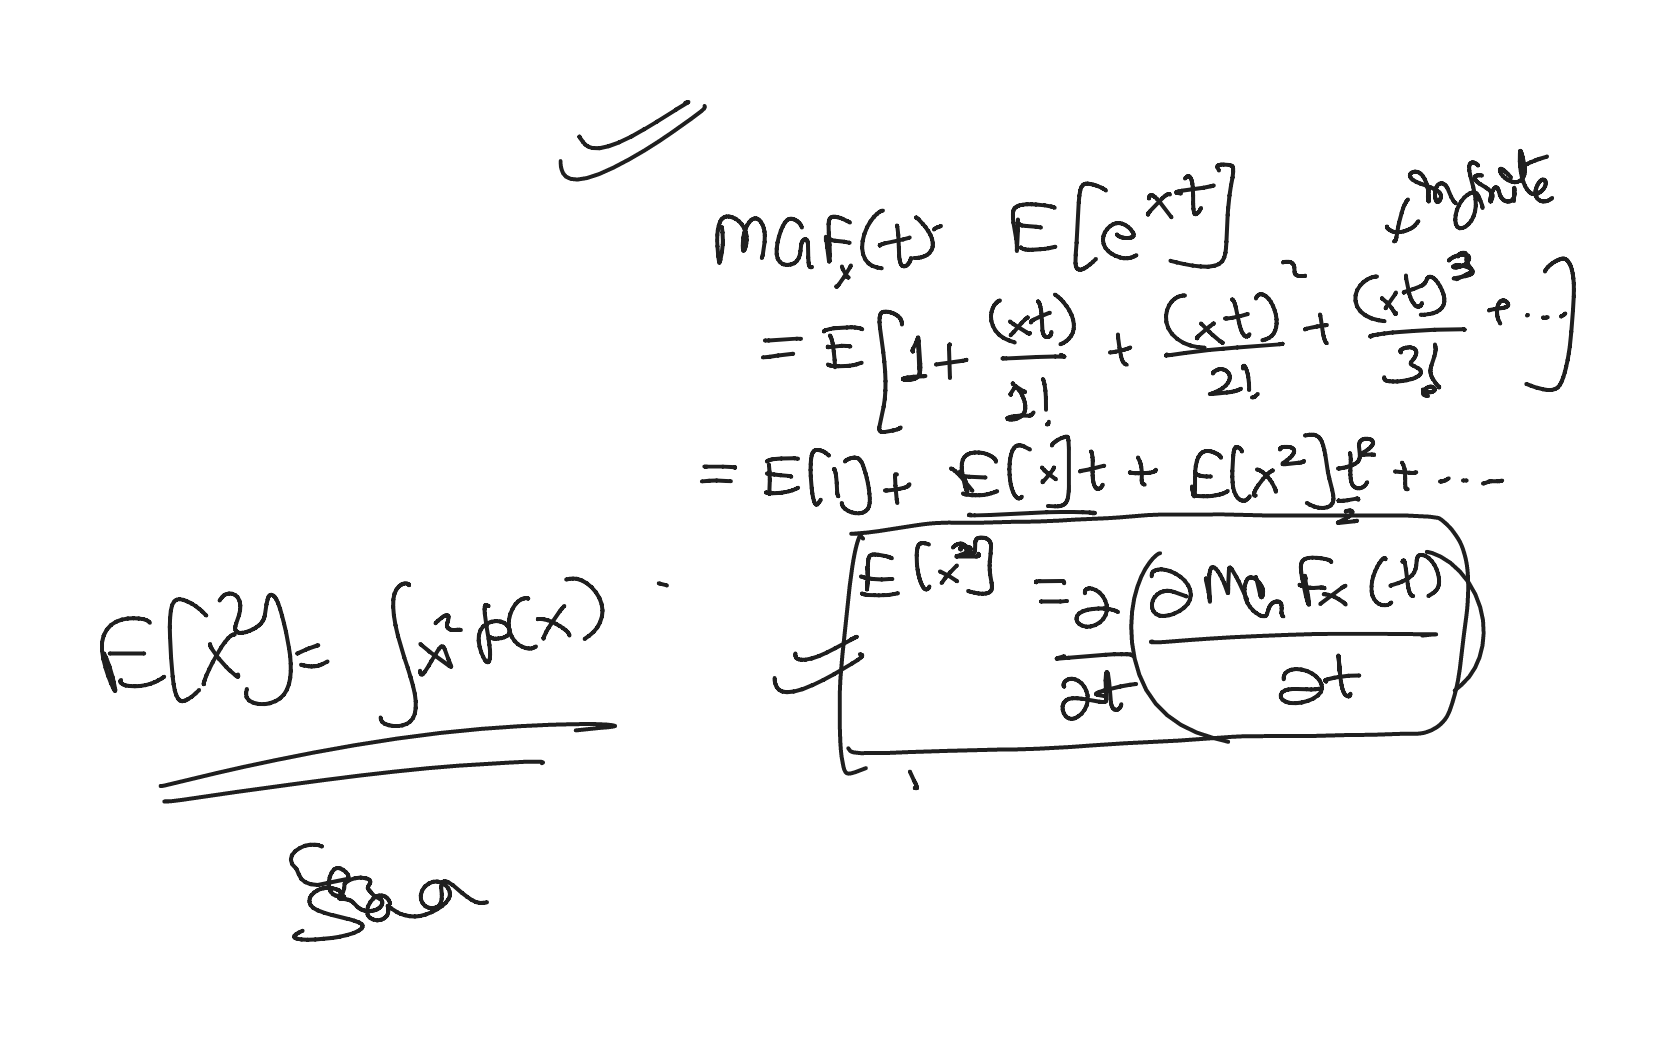 MGF_x(t) E[e^{xt}] infinite
= E[1 + (xt)/1! + (xt)^2/2! + (xt)^3/3! + ...]
= E[1] + E[x]t + E[x^2]t^2/2 + ...
E[x^2] = ∂/∂t (∂MGF_x(t)/∂t)
E[x^2] = ∫x^2 p(x)